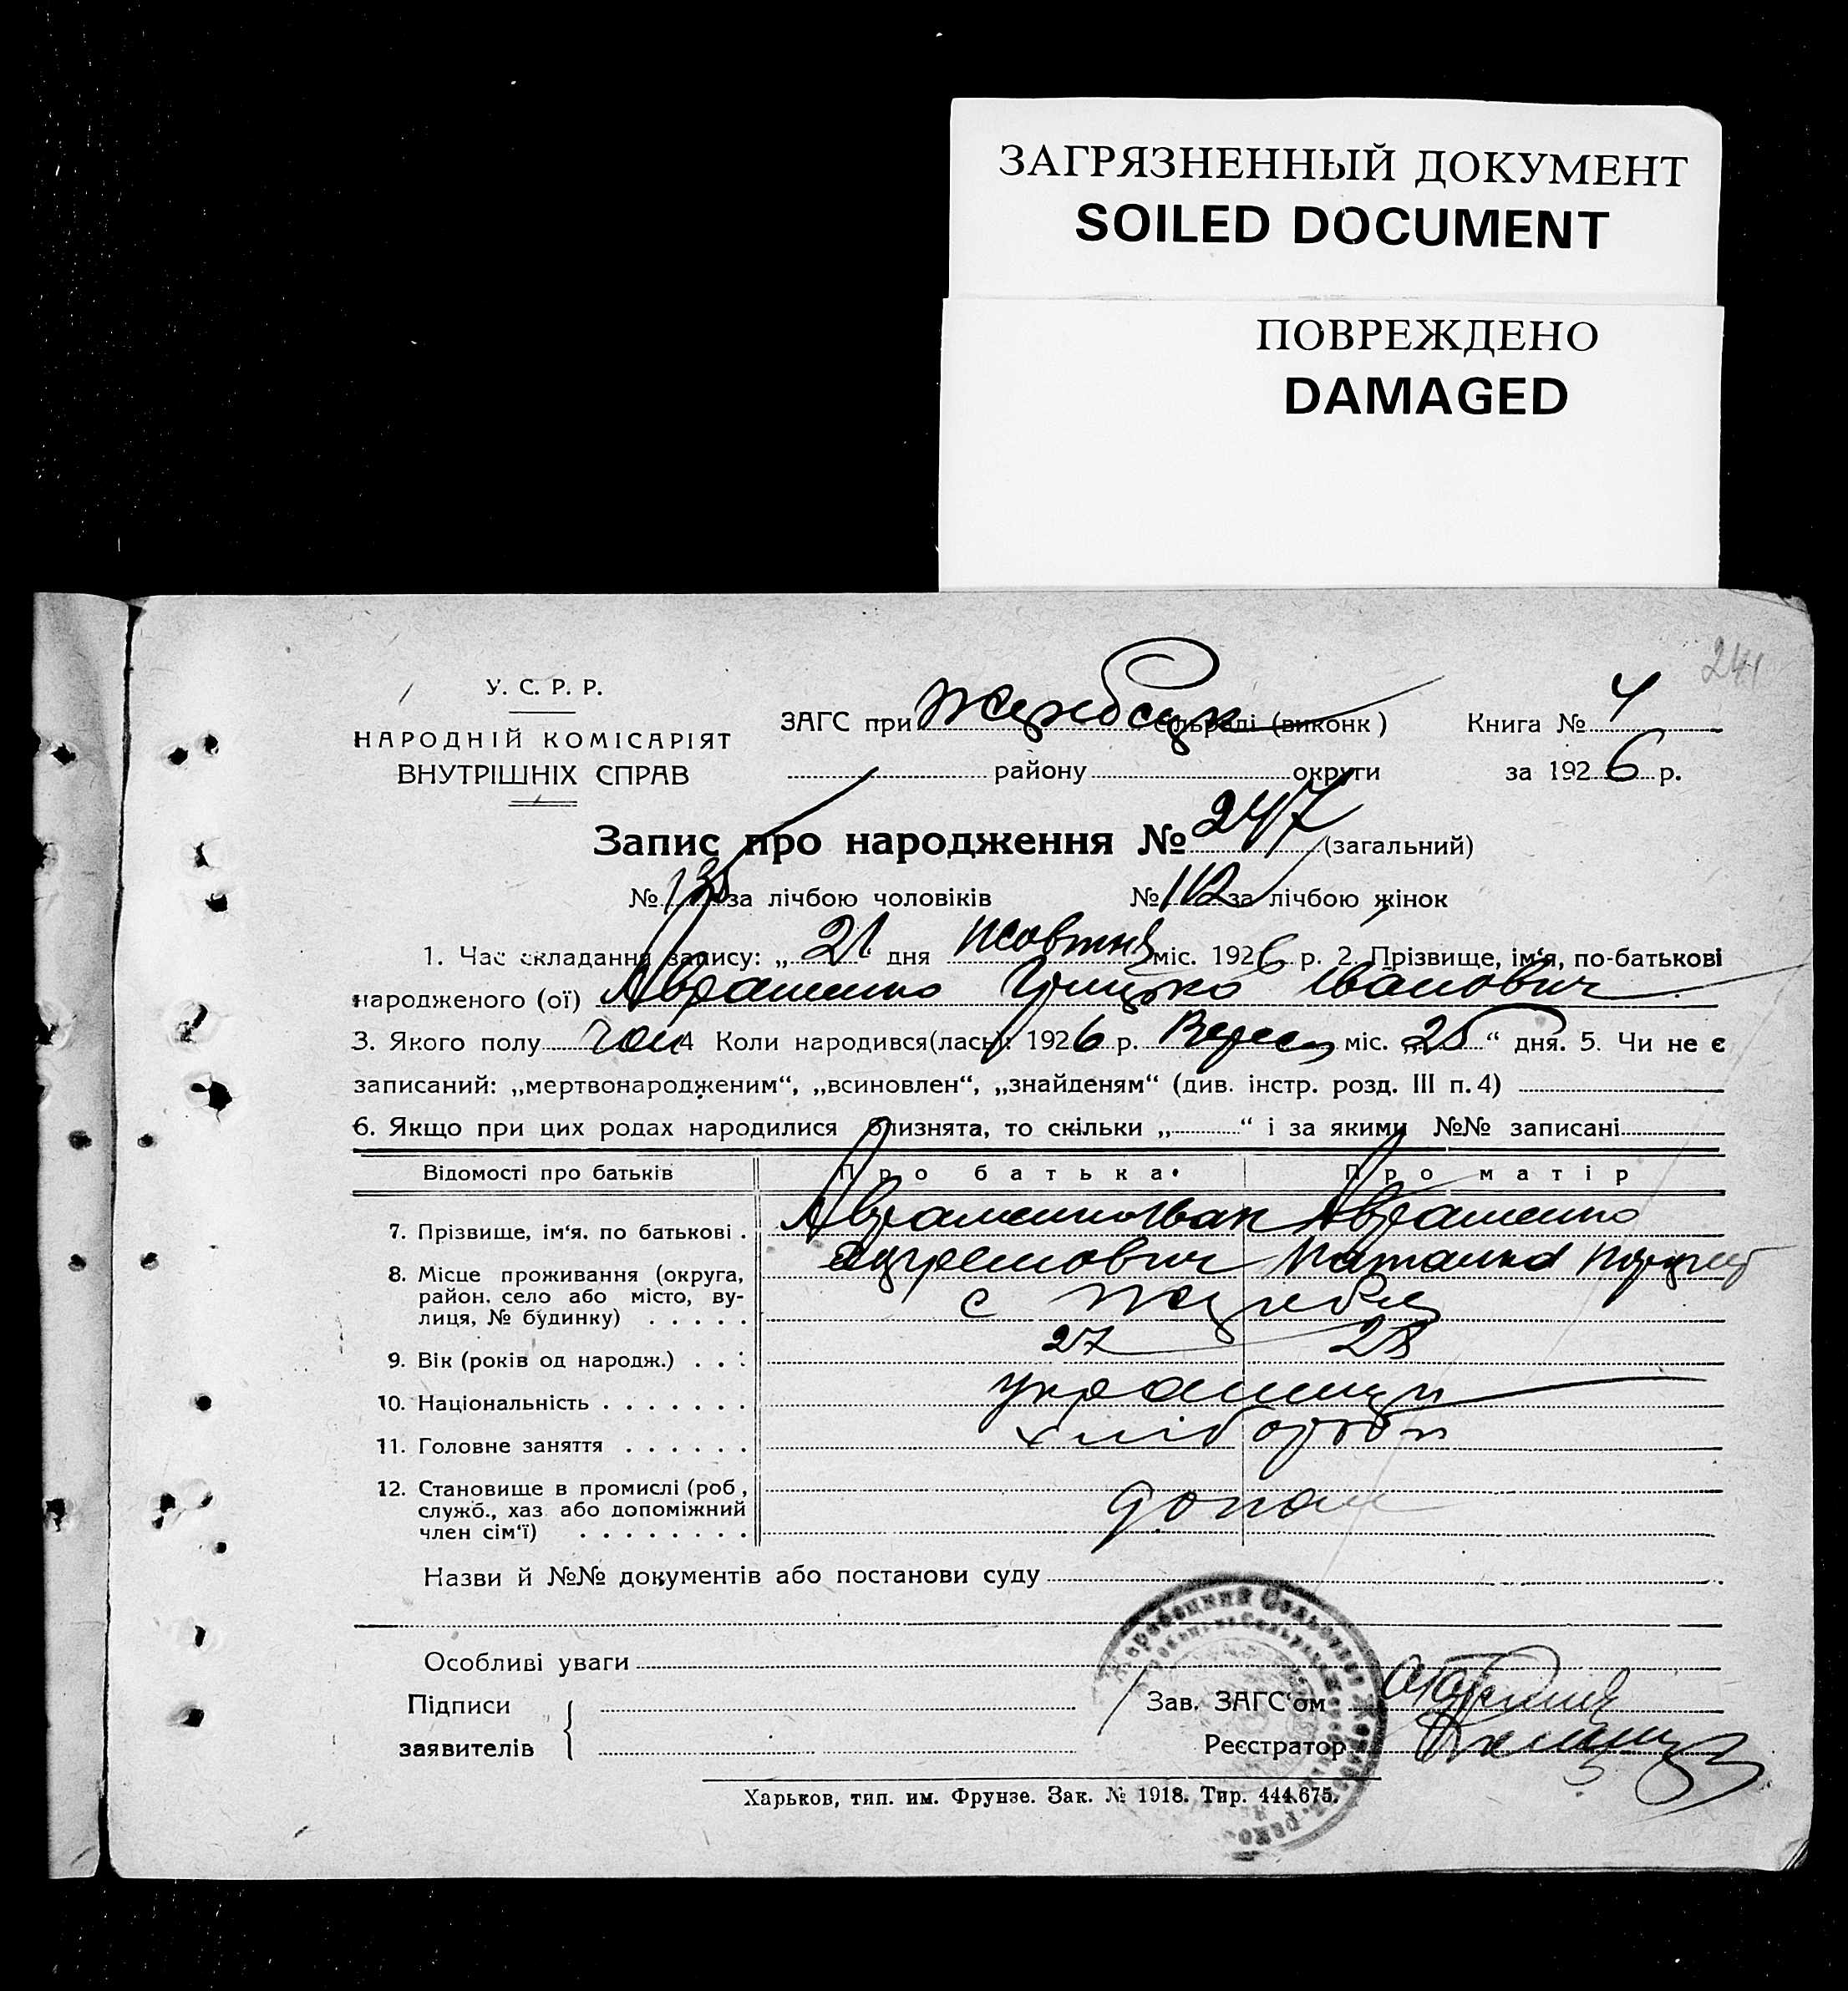 ЗАГРЯЗНЕННЫЙ ДОКУМЕНТ
SOILED DOCUMENT
ПОВРЕЖДЕНО
DAMAGED
241
У. С. Р. Р.
НАРОДНІЙ КОМІСАРІЯТ
ВНУТРІШНІХ СПРАВ
ЗАГС при сельраді (виконк) Книга № 4
району округи за 1926 р.
Запис про народження № 247 (загальний)
№ 135 за лічбою чоловіків № 112 за лічбою жінок
1. Час складання запису: „21“ дня Жовтня міс. 1926 р. 2. Прізвище, ім‘я, по-батькові
народженого (ої) Авраменко Грицько Іванович
3. Якого полу чол 4 Коли народився(лась): 1926 р. Верес міс. „25“ дня. 5. Чи не є
записаний: „мертвонародженим“, „всиновлен“, „знайденям“ (див. інстр. розд. III п. 4)
6. Якщо при цих родах народилися близнята, то скільки „ “ і за якими №№ записані
Відомості про батьків Про батька Про матір
7. Прізвище, ім‘я, по батькові . Авраменко Іван Авраменко
Наталка
8. Місце проживання (округа,
район, село або місто, ву-
лиця, № будинку) . . . . . с
9. Вік (років од народж.) . . . 27 28
10. Національність . . . . . . . українці
11. Головне заняття . . . . . . хлібороби
12. Становище в промислі (роб.,
служб., хаз. або допоміжний
член сім‘ї) . . . . . . . . допом
Назви й №№ документів або постанови суду
Особливі уваги
Підписи
заявителів
Зав. ЗАГС‘ом
Реєстратор
Харьков, тип. им. Фрунзе. Зак. № 1918. Тир. 444.675.